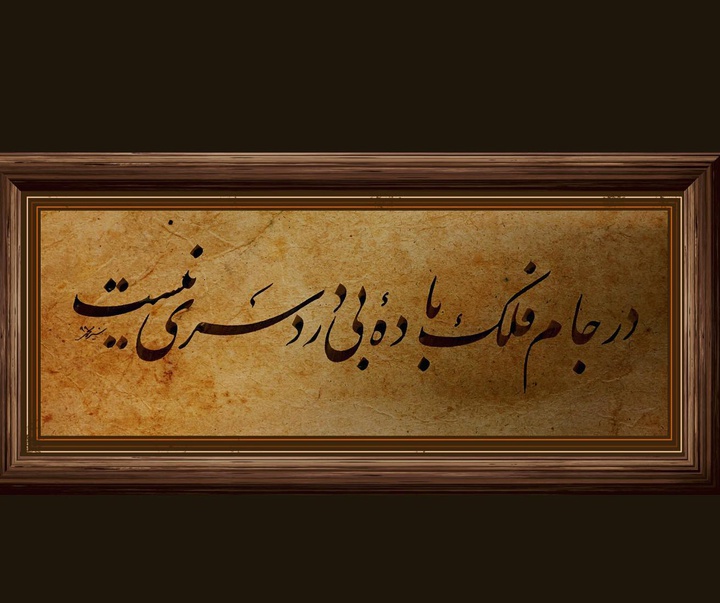 در جام فلک بادهٔ بی دردسری نیست